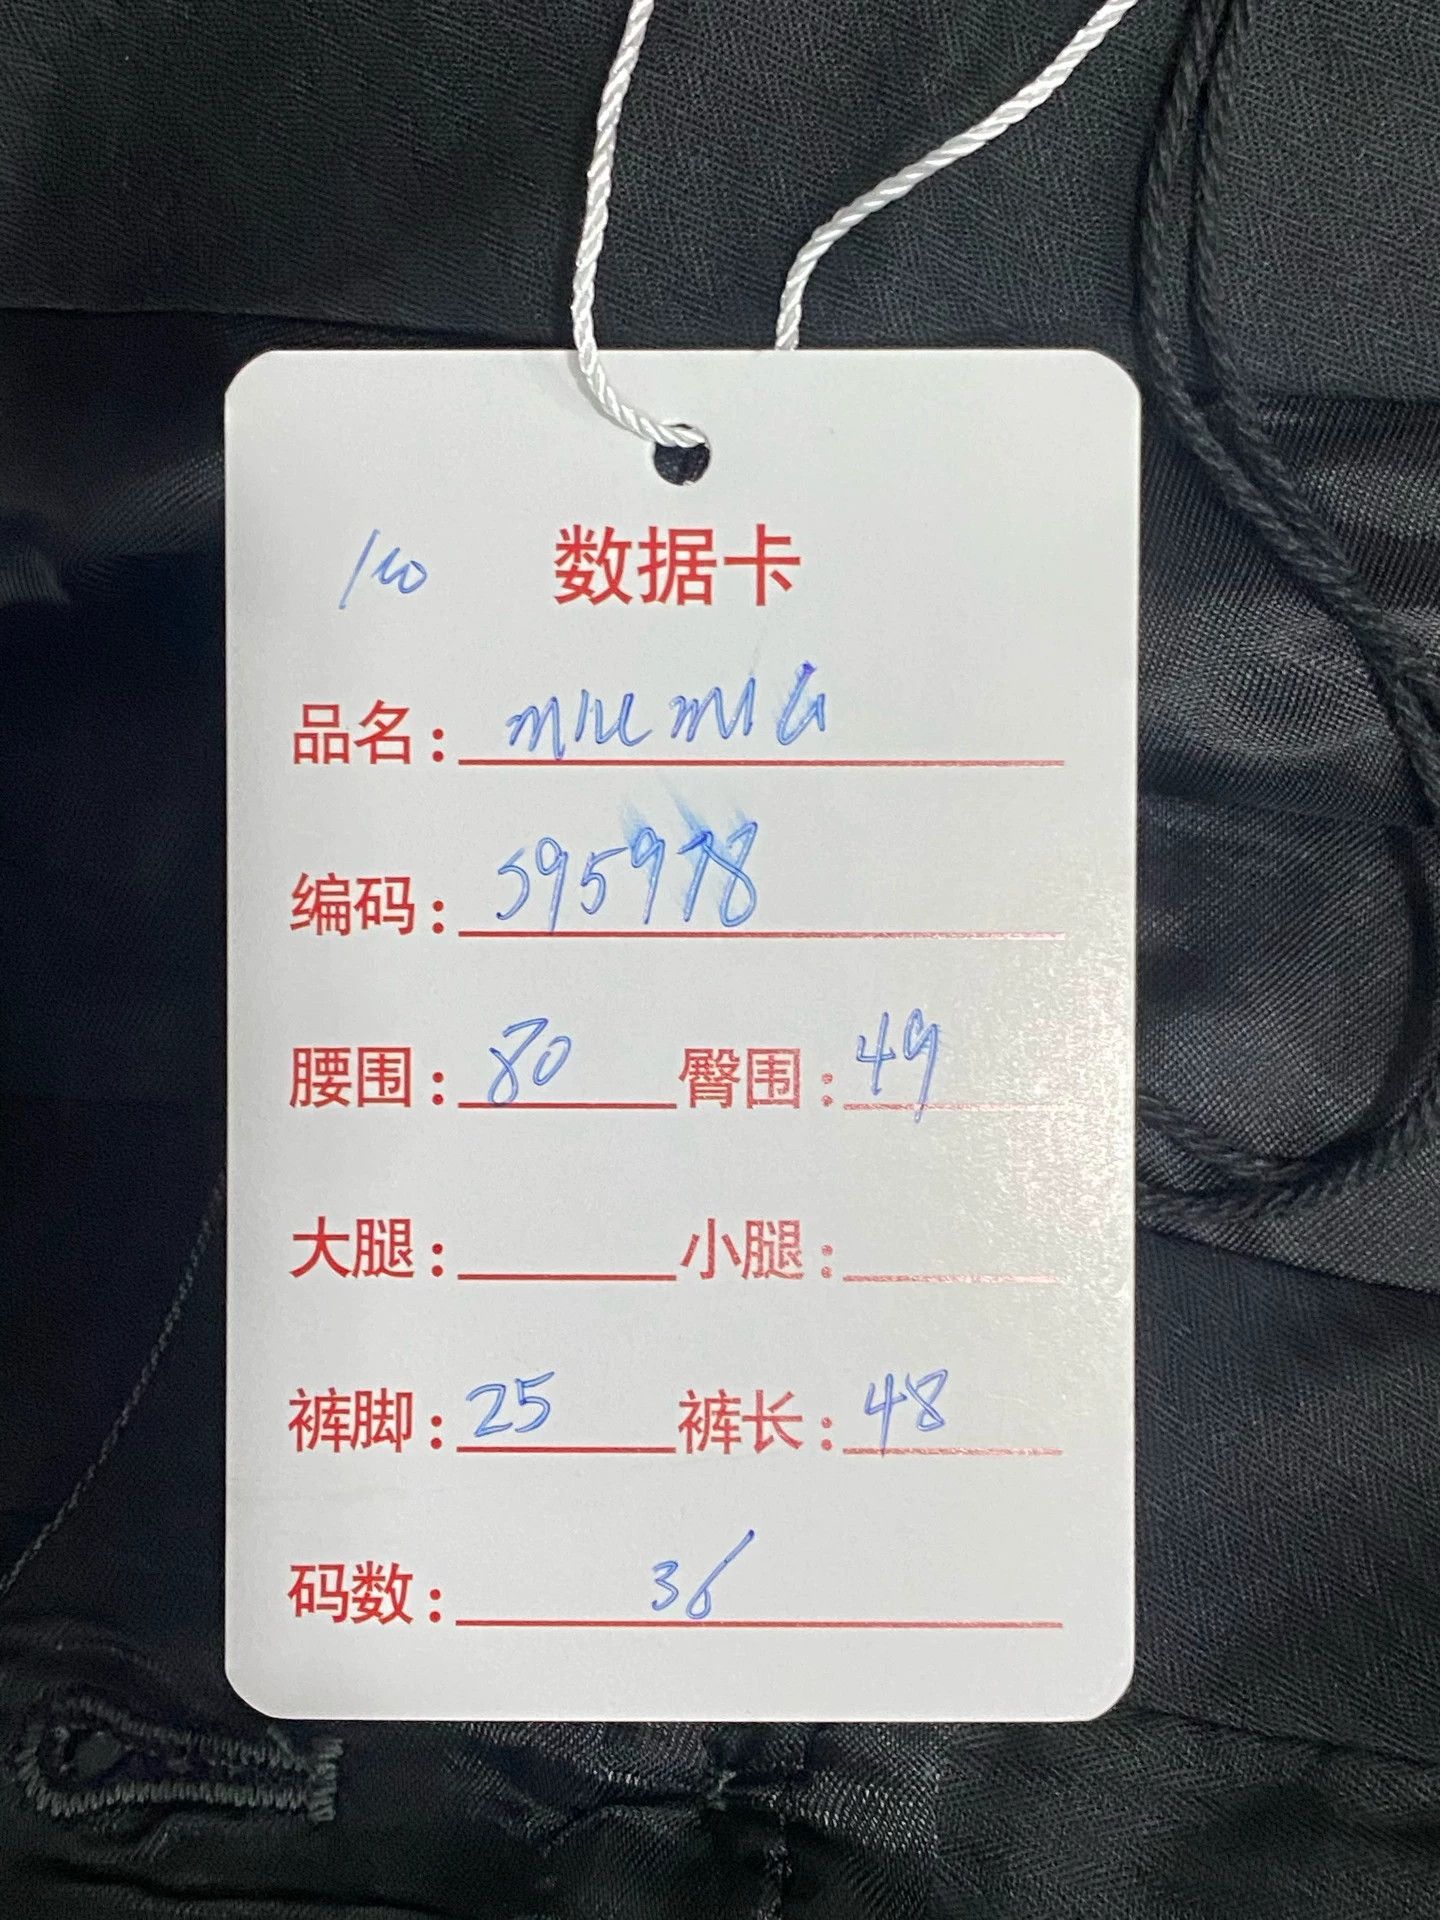 数据卡
品名:
编码: 595978
腰围: 80 臀围: 49
大腿: 小腿:
裤脚: 25 裤长: 48
码数: 36